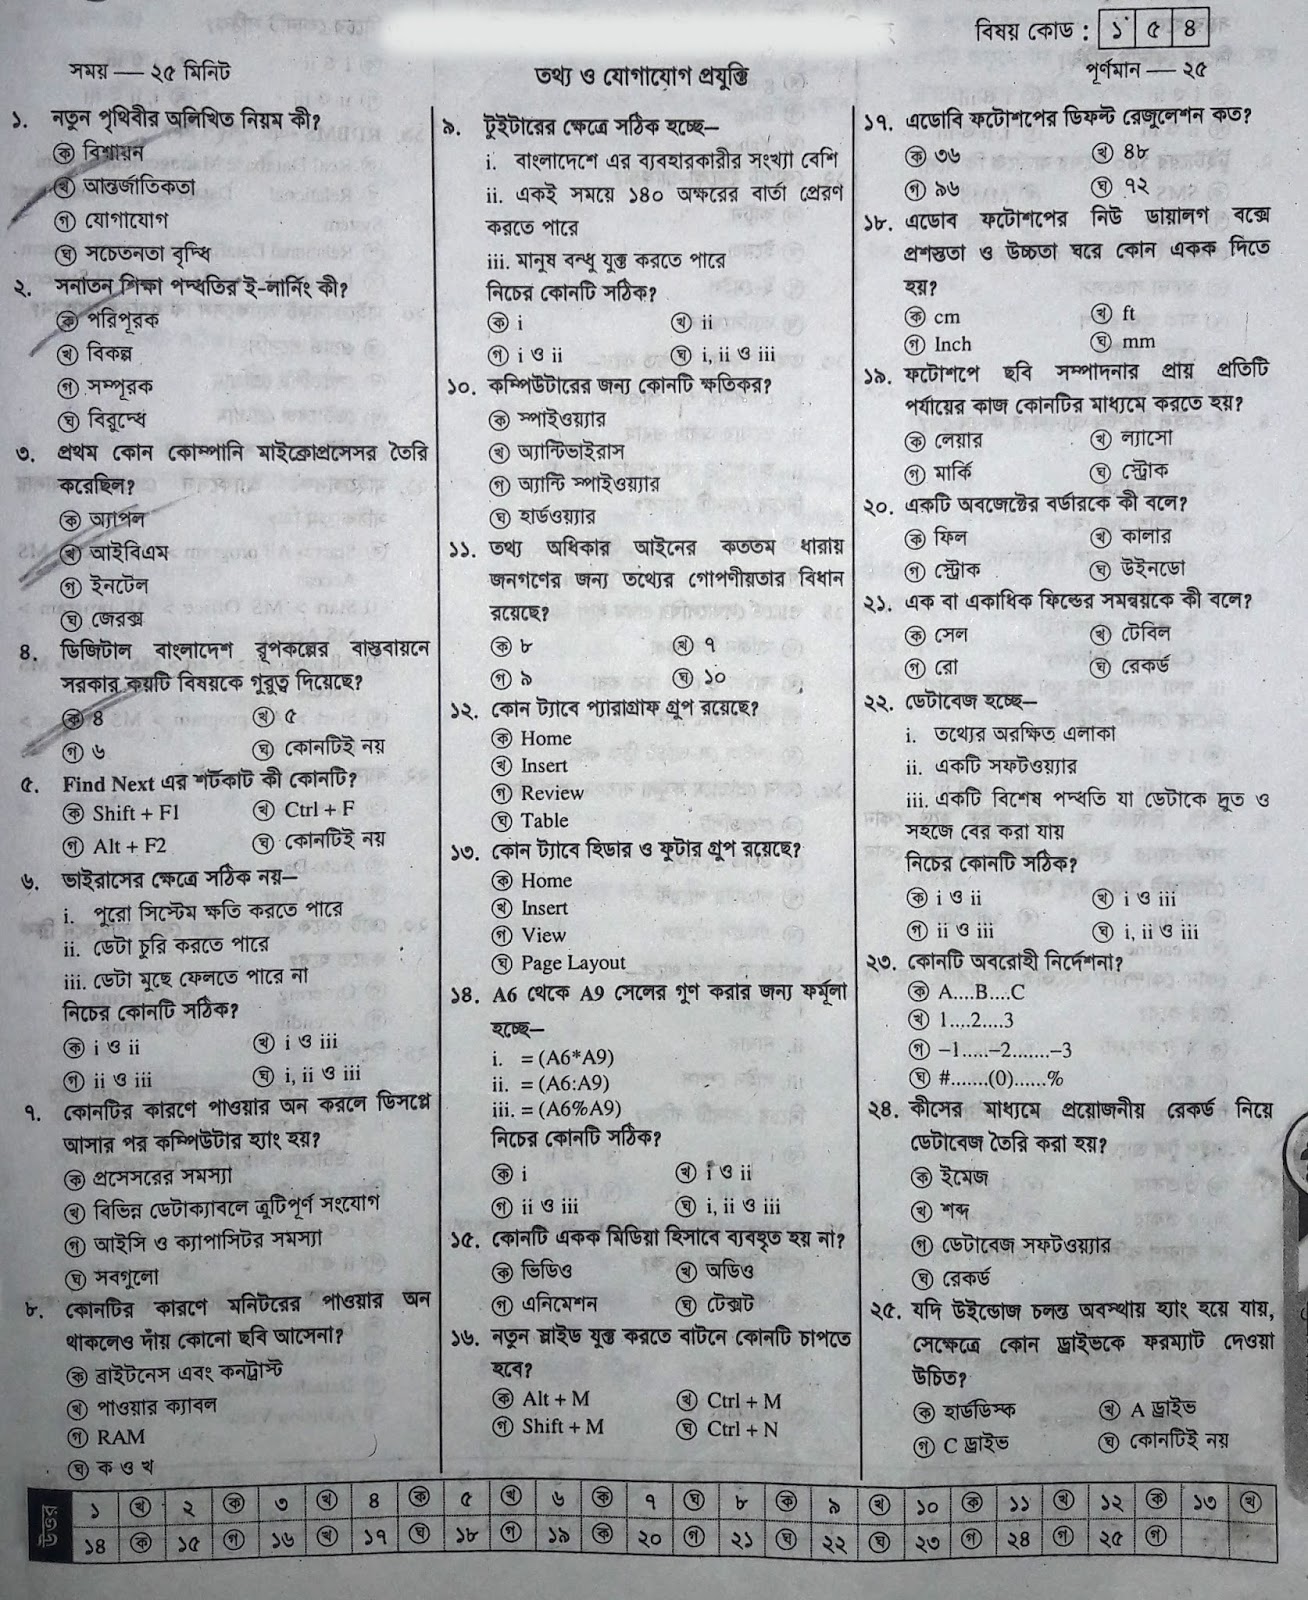 বিষয় কোড : ১ ৫ ৪
সময় — ২৫ মিনিট
তথ্য ও যোগাযোগ প্রযুক্তি
পূর্ণমান — ২৫
১. নতুন পৃথিবীর অলিখিত নিয়ম কী?
ক বিশ্বায়ন
খ আন্তর্জাতিকতা
গ যোগাযোগ
ঘ সচেতনতা বৃদ্ধি
২. সনাতন শিক্ষা পদ্ধতির ই-লার্নিং কী?
ক পরিপূরক
খ বিকল্প
গ সম্পূরক
ঘ বিরুদ্ধে
৩. প্রথম কোন কোম্পানি মাইক্রোপ্রসেসর তৈরি
করেছিল?
ক অ্যাপল
খ আইবিএম
গ ইনটেল
ঘ জেরক্স
৪. ডিজিটাল বাংলাদেশ রূপকল্পের বাস্তবায়নে
সরকার কয়টি বিষয়কে গুরুত্ব দিয়েছে?
ক ৪ খ ৫
গ ৬ ঘ কোনটিই নয়
৫. Find Next এর শর্টকাট কী কোনটি?
ক Shift + F1 খ Ctrl + F
গ Alt + F2 ঘ কোনটিই নয়
৬. ভাইরাসের ক্ষেত্রে সঠিক নয়—
i. পুরো সিস্টেম ক্ষতি করতে পারে
ii. ডেটা চুরি করতে পারে
iii. ডেটা মুছে ফেলতে পারে না
নিচের কোনটি সঠিক?
ক i ও ii খ i ও iii
গ ii ও iii ঘ i, ii ও iii
৭. কোনটির কারণে পাওয়ার অন করলে ডিসপ্লে
আসার পর কম্পিউটার হ্যাং হয়?
ক প্রসেসরের সমস্যা
খ বিভিন্ন ডেটাক্যাবলে ত্রুটিপূর্ণ সংযোগ
গ আইসি ও ক্যাপাসিটর সমস্যা
ঘ সবগুলো
৮. কোনটির কারণে মনিটরের পাওয়ার অন
থাকলেও দাঁয় কোনো ছবি আসেনা?
ক ব্রাইটনেস এবং কনট্রাস্ট
খ পাওয়ার ক্যাবল
গ RAM
ঘ ক ও খ
৯. টুইটারের ক্ষেত্রে সঠিক হচ্ছে—
i. বাংলাদেশে এর ব্যবহারকারীর সংখ্যা বেশি
ii. একই সময়ে ১৪০ অক্ষরের বার্তা প্রেরণ
করতে পারে
iii. মানুষ বন্ধু যুক্ত করতে পারে
নিচের কোনটি সঠিক?
ক i খ ii
গ i ও ii ঘ i, ii ও iii
১০. কম্পিউটারের জন্য কোনটি ক্ষতিকর?
ক স্পাইওয়্যার
খ অ্যান্টিভাইরাস
গ অ্যান্টি স্পাইওয়্যার
ঘ হার্ডওয়্যার
১১. তথ্য অধিকার আইনের কততম ধারায়
জনগণের জন্য তথ্যের গোপণীয়তার বিধান
রয়েছে?
ক ৮ খ ৭
গ ৯ ঘ ১০
১২. কোন ট্যাবে প্যারাগ্রাফ গ্রুপ রয়েছে?
ক Home
খ Insert
গ Review
ঘ Table
১৩. কোন ট্যাবে হিডার ও ফুটার গ্রুপ রয়েছে?
ক Home
খ Insert
গ View
ঘ Page Layout
১৪. A6 থেকে A9 সেলের গুণ করার জন্য ফর্মুলা
হচ্ছে—
i. = (A6*A9)
ii. = (A6:A9)
iii. = (A6%A9)
নিচের কোনটি সঠিক?
ক i খ i ও ii
গ ii ও iii ঘ i, ii ও iii
১৫. কোনটি একক মিডিয়া হিসাবে ব্যবহৃত হয় না?
ক ভিডিও খ অডিও
গ এনিমেশন ঘ টেক্সট
১৬. নতুন স্লাইড যুক্ত করতে বাটনে কোনটি চাপতে
হবে?
ক Alt + M খ Ctrl + M
গ Shift + M ঘ Ctrl + N
১৭. এডোবি ফটোশপের ডিফল্ট রেজুলেশন কত?
ক ৩৬ খ ৪৮
গ ৯৬ ঘ ৭২
১৮. এডোব ফটোশপের নিউ ডায়ালগ বক্সে
প্রশস্ততা ও উচ্চতা ঘরে কোন একক দিতে
হয়?
ক cm খ ft
গ Inch ঘ mm
১৯. ফটোশপে ছবি সম্পাদনার প্রায় প্রতিটি
পর্যায়ের কাজ কোনটির মাধ্যমে করতে হয়?
ক লেয়ার খ ল্যাসো
গ মার্কি ঘ স্ট্রোক
২০. একটি অবজেক্টের বর্ডারকে কী বলে?
ক ফিল খ কালার
গ স্ট্রোক ঘ উইনডো
২১. এক বা একাধিক ফিল্ডের সমন্বয়কে কী বলে?
ক সেল খ টেবিল
গ রো ঘ রেকর্ড
২২. ডেটাবেজ হচ্ছে—
i. তথ্যের অরক্ষিত এলাকা
ii. একটি সফটওয়্যার
iii. একটি বিশেষ পদ্ধতি যা ডেটাকে দ্রুত ও
সহজে বের করা যায়
নিচের কোনটি সঠিক?
ক i ও ii খ i ও iii
গ ii ও iii ঘ i, ii ও iii
২৩. কোনটি অবরোহী নির্দেশনা?
ক A....B....C
খ 1....2....3
গ –1.....–2.......–3
ঘ #.......(0)......%
২৪. কীসের মাধ্যমে প্রয়োজনীয় রেকর্ড নিয়ে
ডেটাবেজ তৈরি করা হয়?
ক ইমেজ
খ শব্দ
গ ডেটাবেজ সফটওয়্যার
ঘ রেকর্ড
২৫. যদি উইন্ডোজ চলন্ত অবস্থায় হ্যাং হয়ে যায়,
সেক্ষেত্রে কোন ড্রাইভকে ফরম্যাট দেওয়া
উচিত?
ক হার্ডডিস্ক খ A ড্রাইভ
গ C ড্রাইভ ঘ কোনটিই নয়
উত্তর
১ খ ২ ক ৩ খ ৪ ক ৫ খ ৬ ক ৭ ঘ ৮ ক ৯ খ ১০ ক ১১ খ ১২ ক ১৩ খ
১৪ ক ১৫ গ ১৬ খ ১৭ ঘ ১৮ গ ১৯ ক ২০ গ ২১ ঘ ২২ ঘ ২৩ গ ২৪ গ ২৫ গ